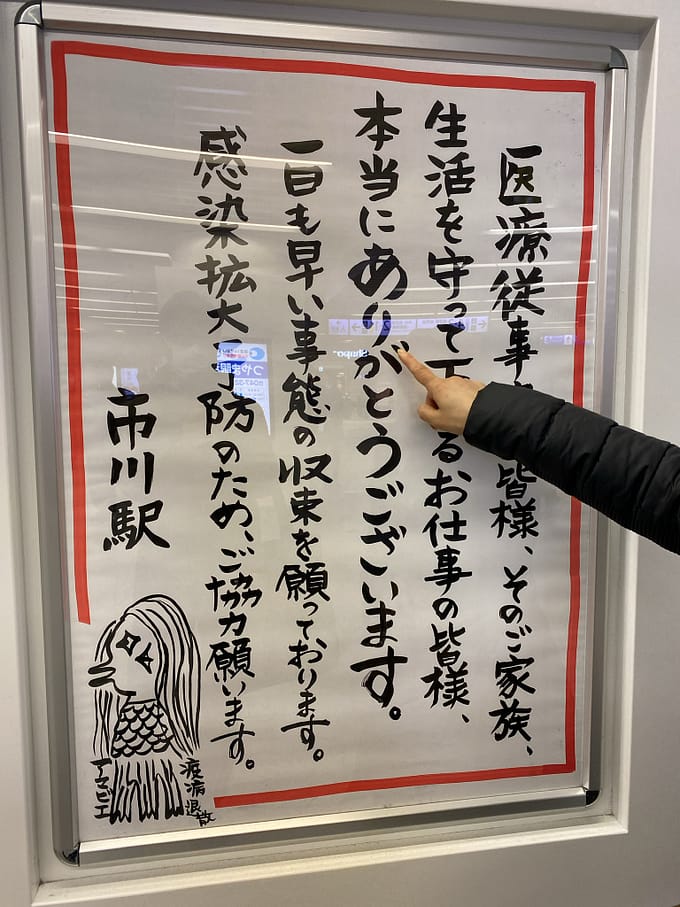 医療従事皆様、そのご家族、
生活を守って下るお仕事の皆様、
本当にありがとうございます。
一日も早い事態の収束を願っております。
感染拡大予防のため、ご協力願います。
市川駅
疫病退散
アマビエ